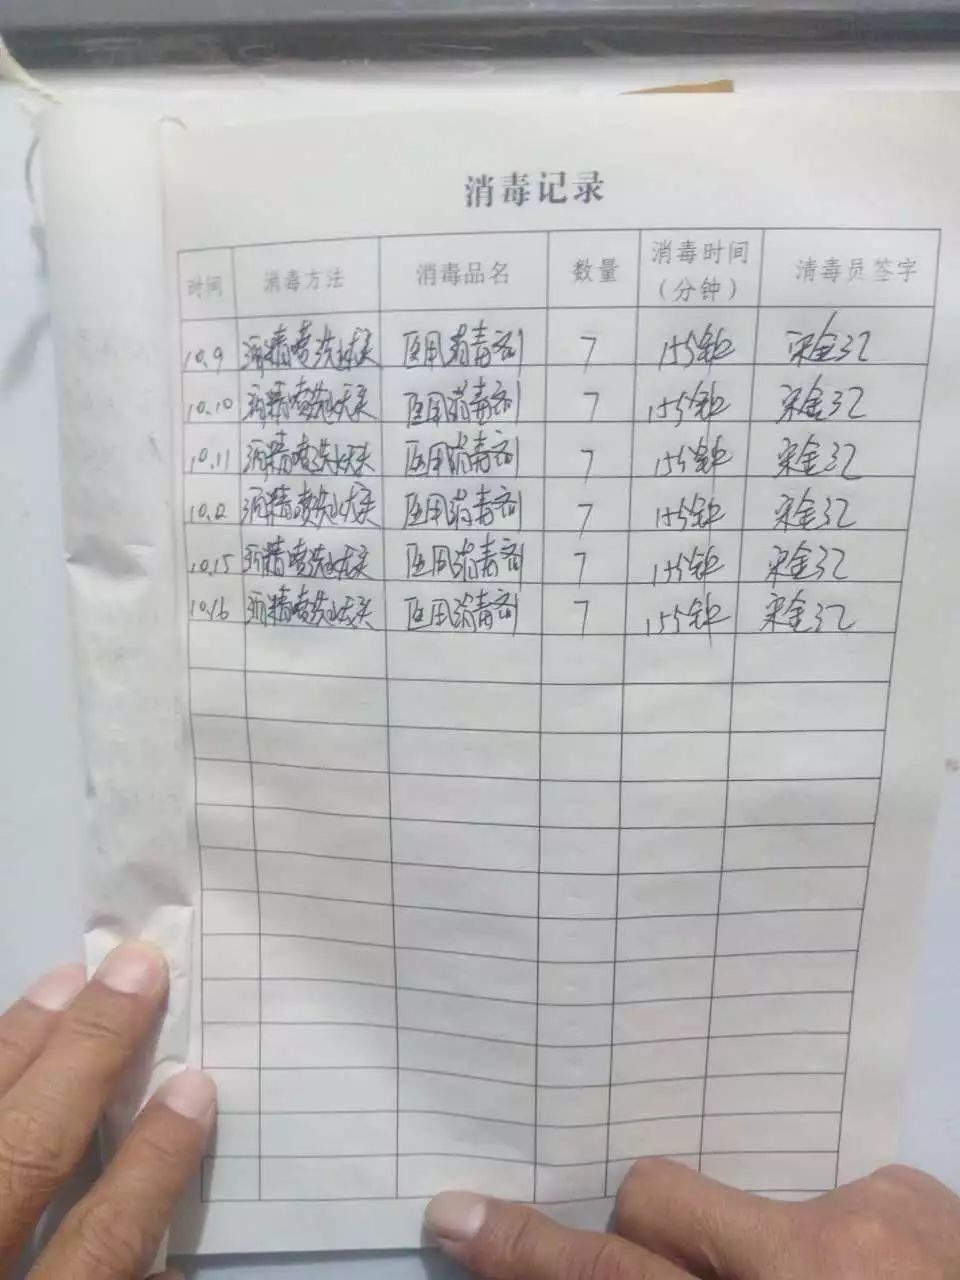 消毒记录
时间 消毒方法 消毒品名 数量 消毒时间（分钟） 清毒员签字
10.9 酒精喷洗 医用消毒剂 7 15分钟 宋金
10.10 酒精喷洗 医用消毒剂 7 15分钟 宋金
10.11 酒精喷洗 医用消毒剂 7 15分钟 宋金
酒精喷洗 医用消毒剂 7 15分钟 宋金
10.15 酒精喷洗 医用消毒剂 7 15分钟 宋金
10.16 酒精喷洗 医用消毒剂 7 15分钟 宋金